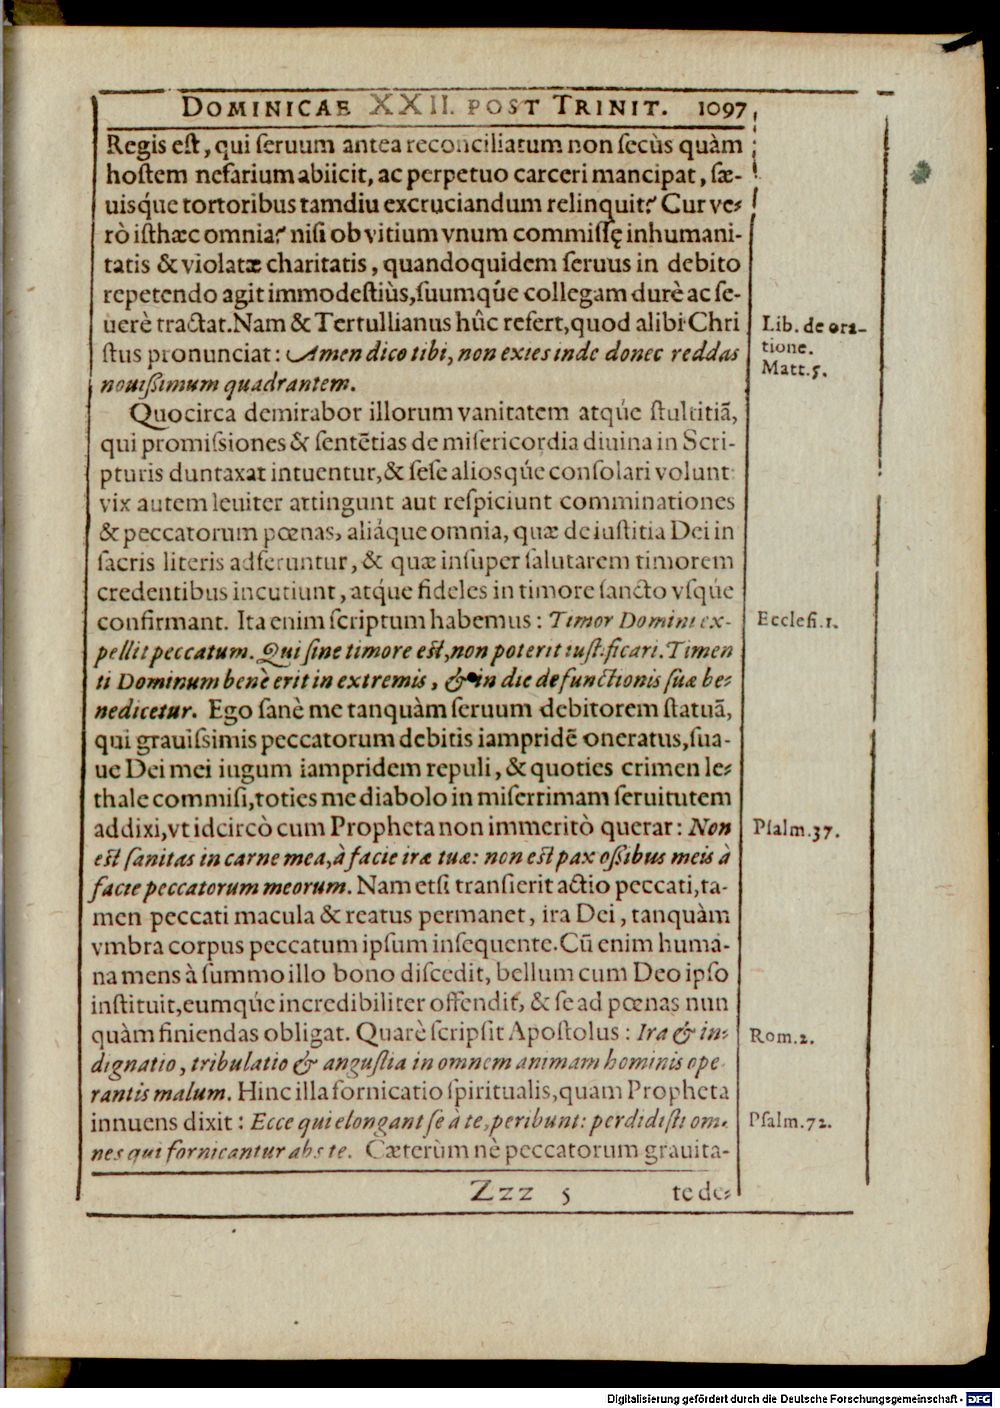 DOMINICAE XXII. POST TRINIT. 1097
Regis est, qui seruum antea reconciliatum non secùs quàm
hostem nefarium abiicit, ac perpetuo carceri mancipat, sæ-
uisq́ue tortoribus tamdiu excruciandum relinquit? Cur ve-
rò isthæc omnia? nisi ob vitium vnum commissę inhumani-
tatis & violatæ charitatis, quandoquidem seruus in debito
repetendo agit immodestiùs, suumq́ue collegam durè ac se-
uerè tractat. Nam & Tertullianus hûc refert, quod alibi Chri
stus pronunciat: Amen dico tibi, non exies inde donec reddas
nouissimum quadrantem.
Lib. de ora-
tione.
Matt.5.
Quocirca demirabor illorum vanitatem atq́ue stultitiã,
qui promissiones & sentẽtias de misericordia diuina in Scri-
pturis duntaxat intuentur, & sese aliosq́ue consolari volunt
vix autem leuiter attingunt aut respiciunt comminationes
& peccatorum pœnas, aliáque omnia, quæ de iustitia Dei in
sacris literis adferuntur, & quæ insuper salutarem timorem
credentibus incutiunt, atq́ue fideles in timore sancto vsq́ue
confirmant. Ita enim scriptum habemus: Timor Domini ex-
pellit peccatum. Qui sine timore est, non poterit iustificari. Timen
ti Dominum benè erit in extremis, & in die defunctionis suæ be-
nedicetur. Ego sanè me tanquàm seruum debitorem statuã,
qui grauissimis peccatorum debitis iampridẽ oneratus, sua-
ue Dei mei iugum iampridem repuli, & quoties crimen le-
thale commisi, toties me diabolo in miserrimam seruitutem
addixi, vt idcircò cum Propheta non immeritò querar: Non
est sanitas in carne mea, à facie iræ tuæ: non est pax ossibus meis à
facie peccatorum meorum. Nam etsi transierit actio peccati, ta-
men peccati macula & reatus permanet, ira Dei, tanquàm
vmbra corpus peccatum ipsum insequente. Cũ enim huma-
na mens à summo illo bono discedit, bellum cum Deo ipso
instituit, eumq́ue incredibiliter offendit, & se ad pœnas nun
quàm finiendas obligat. Quarè scripsit Apostolus: Ira & in-
dignatio, tribulatio & angustia in omnem animam hominis ope-
rantis malum. Hinc illa fornicatio spiritualis, quam Propheta
innuens dixit: Ecce qui elongant se à te, peribunt: perdidisti om-
nes qui fornicantur abs te. Cæterùm nè peccatorum grauita-
Ecclesi.1.
Psalm.37.
Rom.2.
Psalm.72.
Zzz 5 te de-
Digitalisierung gefördert durch die Deutsche Forschungsgemeinschaft - DFG